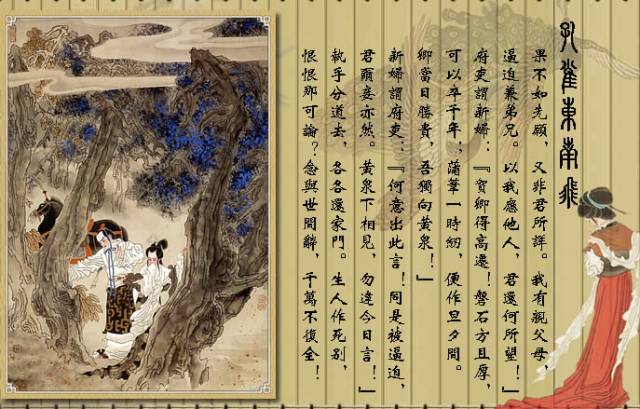 孔雀東南飛
果不如先願，又非君所詳。我有親父母，
逼迫兼弟兄。以我應他人，君還何所望！」
府吏謂新婦：『賀卿得高遷！磐石方且厚，
可以卒千年；蒲葦一時紉，便作旦夕間。
卿當日勝貴，吾獨向黃泉！」
新婦謂府吏：『何意出此言！同是被逼迫，
君爾妾亦然。黃泉下相見，勿違今日言！」
執手分道去，各各還家門。生人作死別，
恨恨那可論？念與世間辭，千萬不復全！